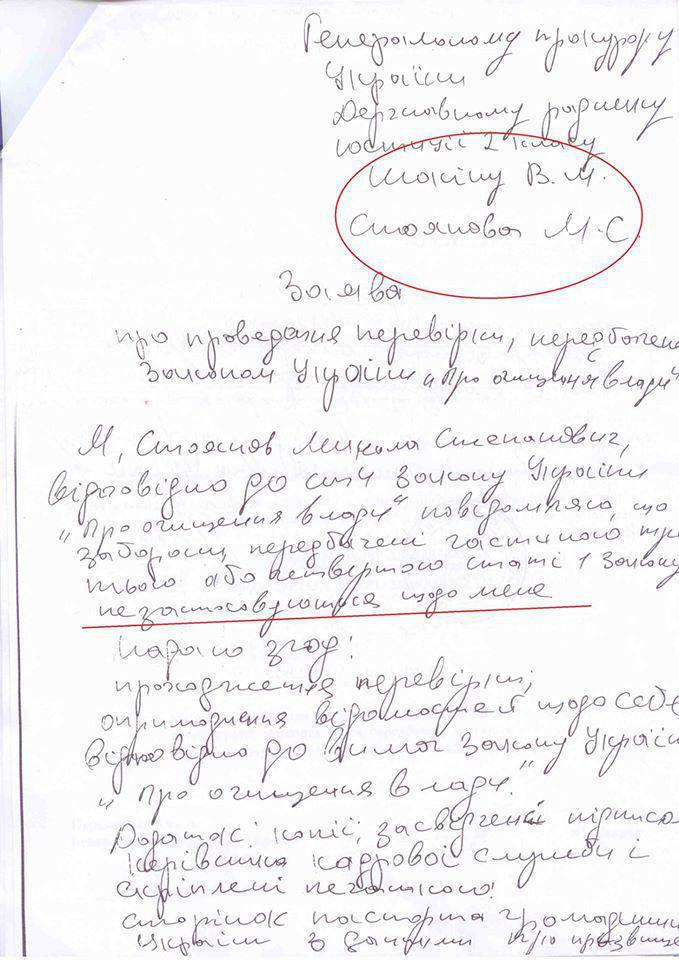 Генеральному прокурору
України
Державному раднику
юстиції 2 класу
Шокіну В.М.
Стоянова М.С.
Заява
про проведення перевірки, передбаченої
Законом України „Про очищення влади"
Я, Стоянов Микола Степанович,
відповідно до ст. 4 Закону України
„Про очищення влади" повідомляю, що
заборони, передбачені частиною тре
тього або четвертого статті 1 Закону
не застосовуються щодо мене
Надаю згоду:
проходження перевірки;
оприлюднення відомостей щодо себе
відповідно до вимог Закону України
„Про очищення влади."
Додаток: копії, засвідчені підписом
керівника кадрової служби і
скріплені печаткою:
сторінок паспорта громадянина
України з даними про прізвище